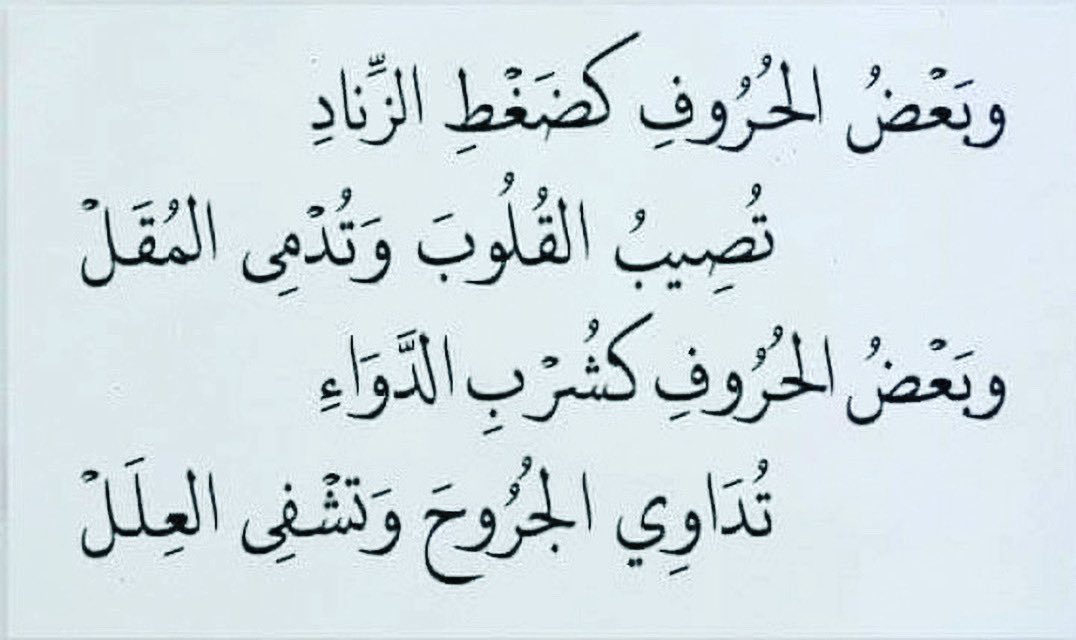 وبَعْضُ الحُرُوفِ كضَغْطِ الزِّنادِ
تُصِيبُ القُلُوبَ وَتُدْمِى المُقَلْ
وبَعْضُ الحُرُوفِ كشُرْبِ الدَّوَاءِ
تُدَاوِي الجُرُوحَ وَتشْفِى العِلَلْ